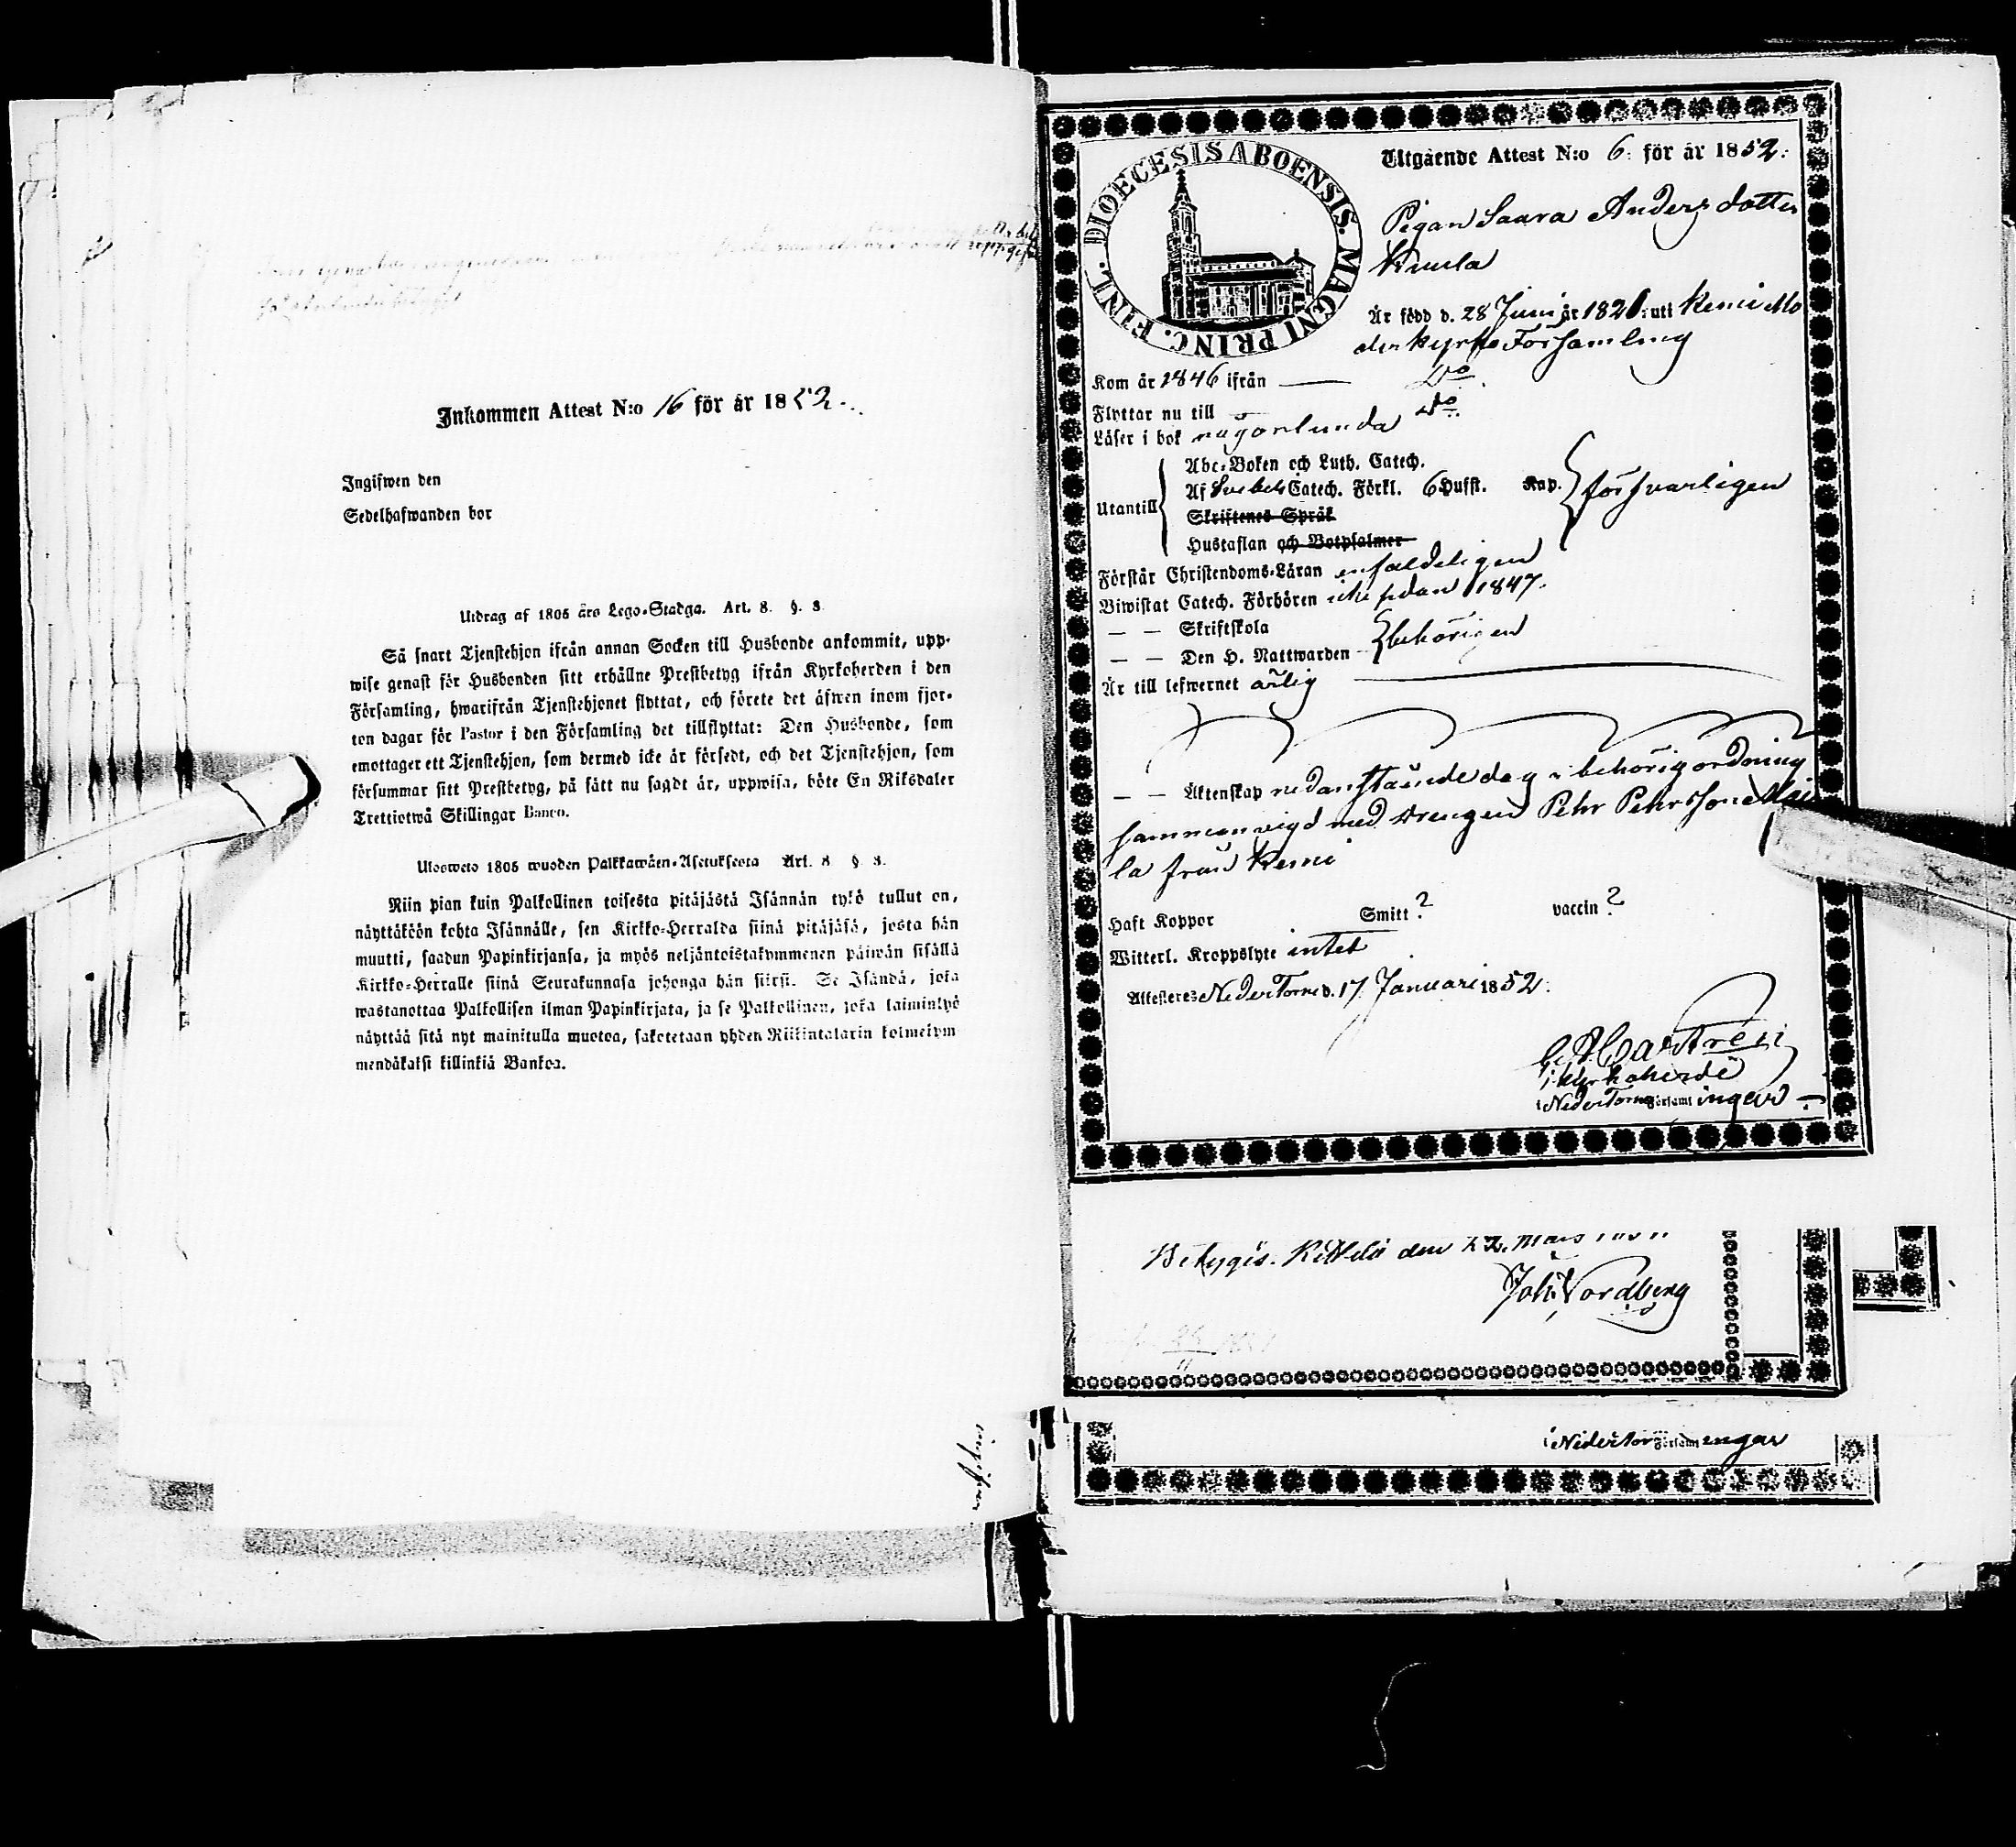 Inkommen Attest N:o 16 för år 1852.
Ingifwen den
Sedelhafwanden bor
Utdrag af 1805 års Lego-Stadga. Art. 8. §. 8.
Så snart Tjenstehjon ifrån annan Socken till Husbonde ankommit, upp-
wise genast för Husbonden sitt erhållne Prestbetyg ifrån Kyrkoherden i den
Församling, hwarifrån Tjenstehjonet flyttat, och förete det äfwen inom fjor-
ton dagar för Pastor i den Församling det tillflyttat: Den Husbonde, som
emottager ett Tjenstehjon, som dermed icke är försedt, och det Tjenstehjon, som
försummar sitt Prestbetyg, på sätt nu sagdt är, uppwisa, böte En Riksdaler
Trettiotwå Skillingar Banco.
Ulosweto 1805 wuoden Palkkawäen-Asetuksesta Art. 8 §. 8.
Niin pian kuin Palkollinen toisesta pitäjästä Isännän tykö tullut on,
näyttäköön kohta Isännälle, sen Kirkko-Herralda siinä pitäjäsä, josta hän
muutti, saadun Papinkirjansa, ja myös neljäntoistakymmenen päiwän sisällä
Kirkko-Herralle siinä Seurakunnasa johonga hän siirsi. Se Isändä, joka
wastanottaa Palkollisen ilman Papinkirjata, ja se Palkollinen, joka laiminlyö
näyttää sitä nyt mainitulla muotoa, sakotetaan yhden Riikintalarin kolmekym
mendäkaksi killinkiä Bankoa.
DIOECESIS ABOENSIS. MAGNI PRINC. FINL.
Utgående Attest N:o 6: för år 1852:
Pigan Saara Anders dotter
Är född d. 28 Juni år 182 uti Kemi Mo
derkyrko Församling
Kom år 1846 ifrån — Do
Flyttar nu till — Do
Läser i bok någorlunda
Utantill
Abc-Boken och Luth. Catech.
Af Svebel. Catech. Förkl. 6 Hufst. Kap. försvarligen
Skriftenes Språk
Hustaflan och Botpsalmer
Förstår Christendoms-Läran enfaldeligen
Biwistat Catech. Förhören icke sedan 1847.
— — Skriftskola
— — Den H. Nattwarden behörigen
Är till lefwernet ärlig
— — Äktenskap nedanstående dag i behörig ordning
sammanvigd med drengen Pehr Pehrsson
la från Kemi
Haft Koppor Smitt ? vaccin ?
Witterl. Kroppslyte intet
Attesteres NederTorneå d. 17 Januari 1852.
Castrén
Kyrkoherde
i NederTorneå Församlingar
Betygas. Kittilä den 22. Mars
Joh. Nordberg
i NederTorneå Församlingar